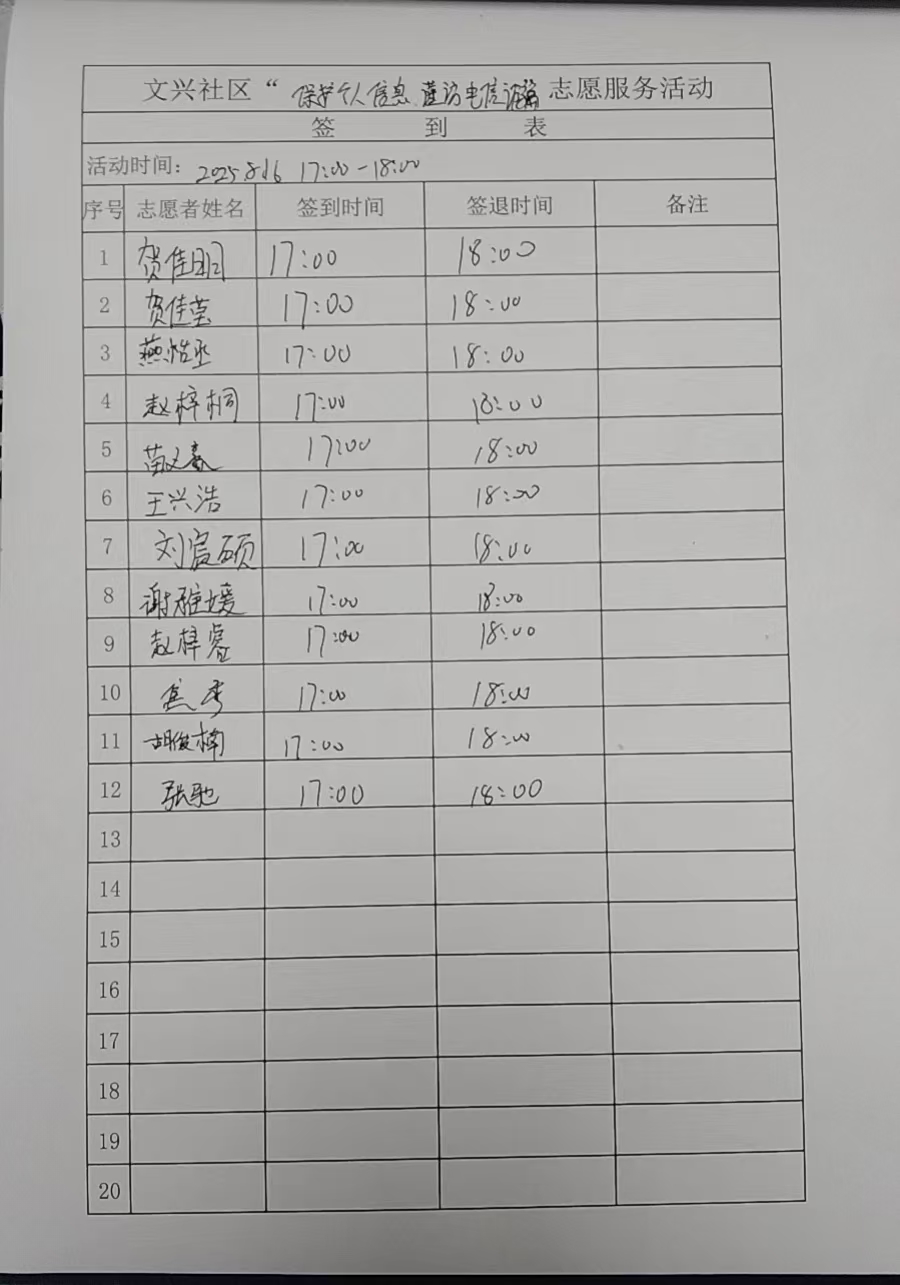 文兴社区“保护个人信息、谨防电信诈骗志愿服务活动
签 到 表
活动时间： 2025.8.16 17:00-18:00
序号 志愿者姓名 签到时间 签退时间 备注
1 贺佳明 17:00 18:00
2 贺佳莹 17:00 18:00
3 燕怡丞 17:00 18:00
4 赵梓桐 17:00 18:00
5 苗 17:00 18:00
6 王兴浩 17:00 18:00
7 刘宸硕 17:00 18:00
8 谢雅媛 17:00 18:00
9 赵梓睿 17:00 18:00
10 焦 17:00 18:00
11 胡俊楠 17:00 18:00
12 张驰 17:00 18:00
13
14
15
16
17
18
19
20